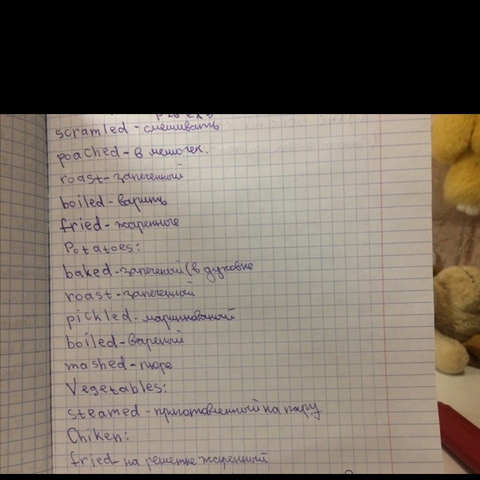 scramled - смешивать
poached - в мешочек.
roast - запеченный
boiled - варить
fried - жаренные
Potatoes:
baked - запеченый (в духовке
roast - запеченный
pickled - маринованый
boiled - вареный
mashed - пюре
Vegetables:
steamed - приготовленный на пару
Chiken:
fried - на решетке жаренный